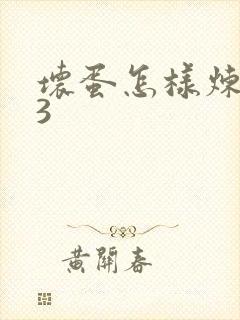 壞蛋怎樣煉
3
黃開春